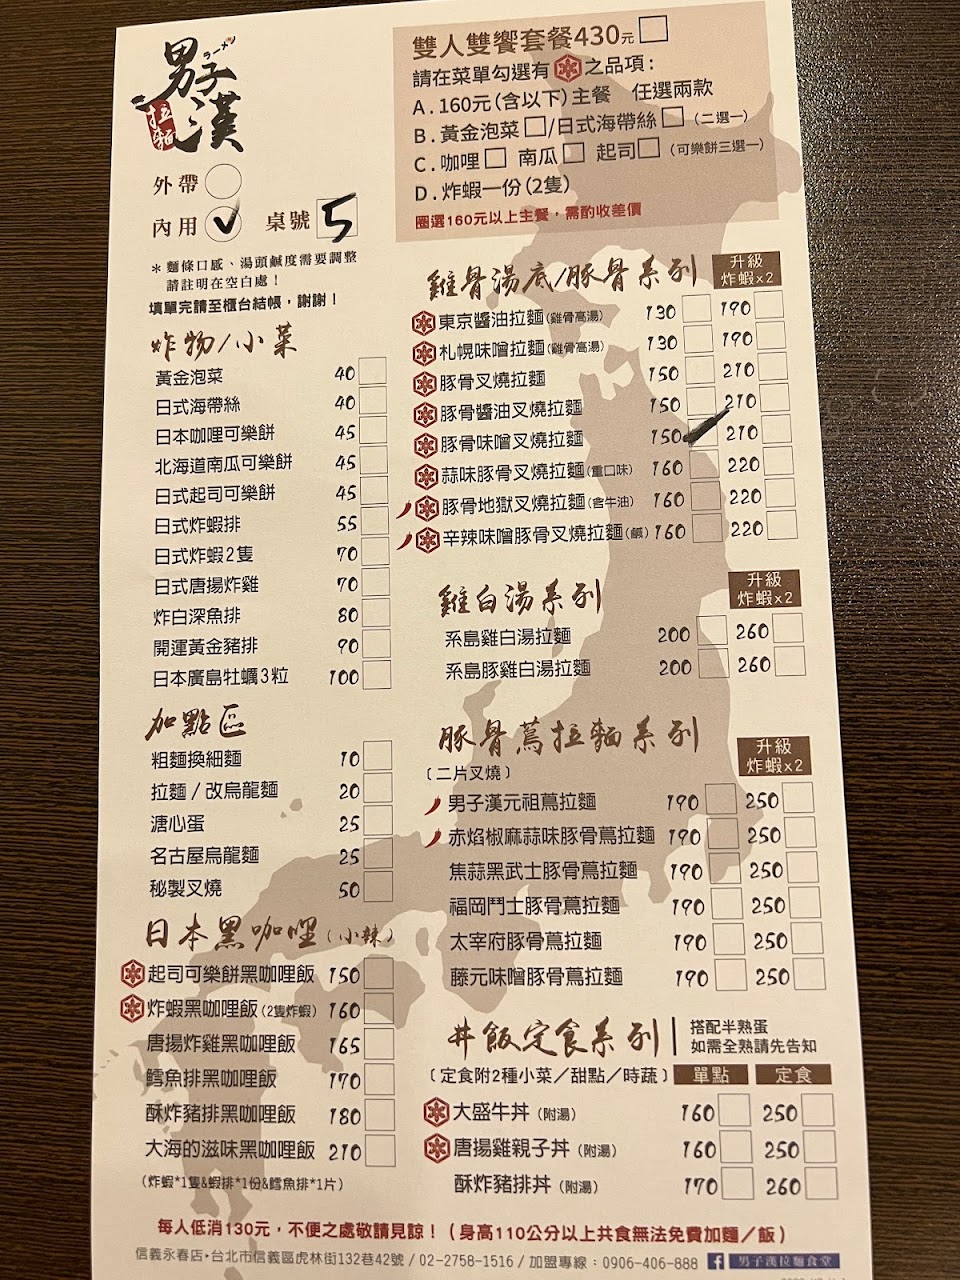 男子漢
ラーメン
拉麵
外帶
內用 ✓ 桌號 5
＊麵條口感、湯頭鹹度需要調整
請註明在空白處！
填單完請至櫃台結帳，謝謝！
雙人雙饗套餐430元
請在菜單勾選有之品項：
A.160元(含以下)主餐 任選兩款
B.黃金泡菜□/日式海帶絲□（二選一）
C.咖哩□ 南瓜□ 起司□（可樂餅三選一）
D.炸蝦一份(2隻)
圈選160元以上主餐，需酌收差價
炸物/小菜
黃金泡菜 40
日式海帶絲 40
日本咖哩可樂餅 45
北海道南瓜可樂餅 45
日式起司可樂餅 45
日式炸蝦排 55
日式炸蝦2隻 70
日式唐揚炸雞 70
炸白深魚排 80
開運黃金豬排 90
日本廣島牡蠣3粒 100
加點區
粗麵換細麵 10
拉麵/改烏龍麵 20
溏心蛋 25
名古屋烏龍麵 25
秘製叉燒 50
日本黑咖哩(小辣)
起司可樂餅黑咖哩飯 150
炸蝦黑咖哩飯(2隻炸蝦) 160
唐揚炸雞黑咖哩飯 165
鱈魚排黑咖哩飯 170
酥炸豬排黑咖哩飯 180
大海的滋味黑咖哩飯 210
(炸蝦*1隻&蝦排*1份&鱈魚排*1片)
雞骨湯底/豚骨系列 升級炸蝦x2
東京醬油拉麵(雞骨高湯) 130 190
札幌味噌拉麵(雞骨高湯) 130 190
豚骨叉燒拉麵 150 210
豚骨醬油叉燒拉麵 150 210
豚骨味噌叉燒拉麵 150 ✓ 210
蒜味豚骨叉燒拉麵(重口味) 160 220
豚骨地獄叉燒拉麵(含牛油) 160 220
辛辣味噌豚骨叉燒拉麵(鹹) 160 220
雞白湯系列 升級炸蝦x2
系島雞白湯拉麵 200 260
系島豚雞白湯拉麵 200 260
豚骨蔦拉麵系列 升級炸蝦x2
〔二片叉燒〕
男子漢元祖蔦拉麵 190 250
赤焰椒麻蒜味豚骨蔦拉麵 190 250
焦蒜黑武士豚骨蔦拉麵 190 250
福岡鬥士豚骨蔦拉麵 190 250
太宰府豚骨蔦拉麵 190 250
藤元味噌豚骨蔦拉麵 190 250
丼飯定食系列 搭配半熟蛋
如需全熟請先告知
〔定食附2種小菜／甜點／時蔬〕 單點 定食
大盛牛丼(附湯) 160 250
唐揚雞親子丼(附湯) 160 250
酥炸豬排丼(附湯) 170 260
每人低消130元，不便之處敬請見諒！（身高110公分以上共食無法免費加麵／飯）
信義永春店•台北市信義區虎林街132巷42號 / 02-2758-1516 / 加盟專線：0906-406-888 f 男子漢拉麵食堂